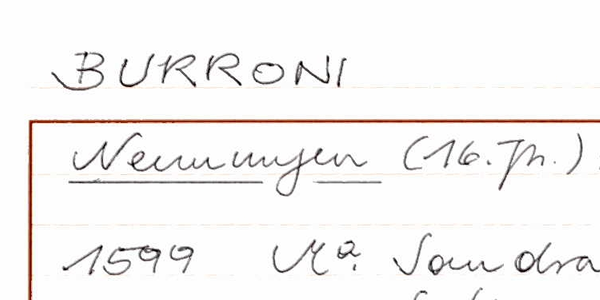 BURRONI
Nennungen (16. Jh.)
1599 Ma. Sandra